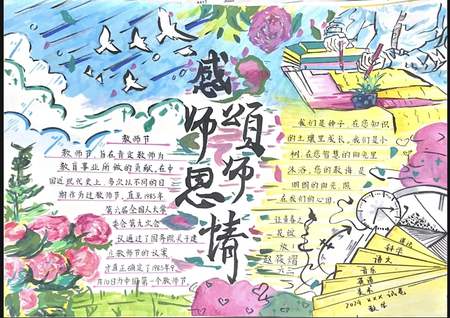 感师恩
颂师情
教师节
教师节,旨在肯定教师为
教育事业所做的贡献,在中
国近现代史上,多次以不同的日
期作为过教师节,直至1985年
第六届全国人大常
委会第九次会
议通过了国务院关于建
立教师节的议案
才真正确定了1985年9
月10日为中国第一个教师节
我们是种子,在您知识
的土壤里成长,我们是小
树,在您智慧的阳光里
沐浴,您的教诲是
明朗的阳光,照
在我们的心田,
让青春之
花绽
放!
六三
道法
科学
语文
音乐
英语
美术
2024 xxx 试卷
数学